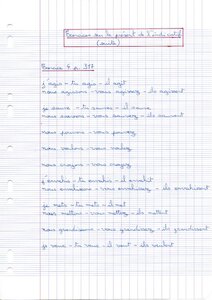 Exercices sur le présent de l'indicatif
(suite)
Exercice 4 p. 317
j'agis - tu agis - il agit
nous agissons - vous agissez - ils agissent
je sauve - tu sauves - il sauve
nous sauvons - vous sauvez - ils sauvent
nous pouvons - vous pouvez
nous voulons - vous voulez
nous croyons - vous croyez
j'envahis - tu envahis - il envahit
nous envahissons - vous envahissez - ils envahissent
je mets - tu mets - il met
nous mettons - vous mettez - ils mettent
nous grandissons - vous grandissez - ils grandissent
je veux - tu veux - il veut - ils veulent